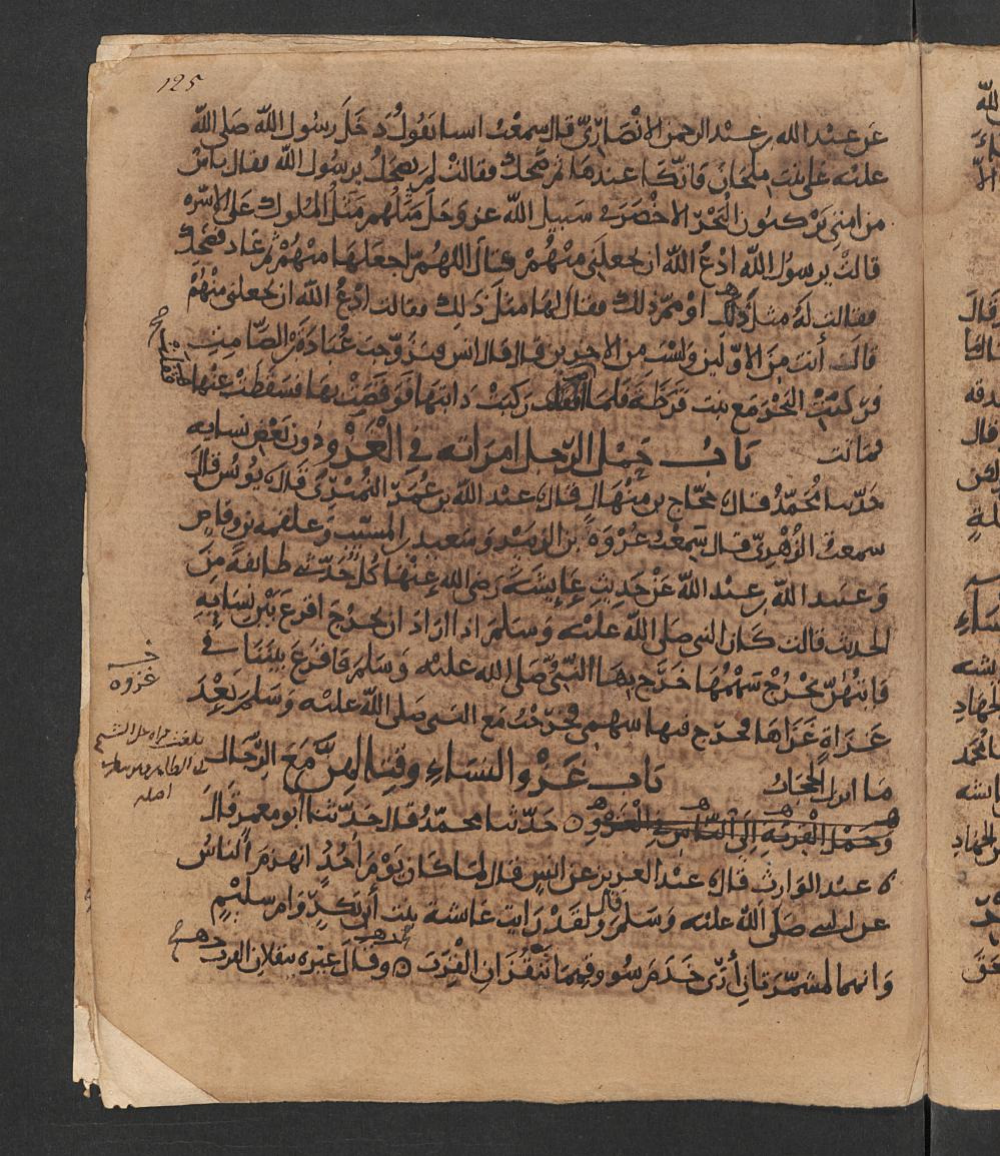 125
عن عبد الله بن عبد الرحمن الانصاري قال سمعت انسا يقول دخل رسول الله صلى الله
عليه على بنت ملحان فاتكا عندها ثم ضحك فقالت لم تضحك يرسول الله فقال ناس
من امتي يركبون البحر الاخضر في سبيل الله عز وجل مثلهم مثل الملوك على الاسره
قالت يرسول الله ادع الله ان يجعلني منهم فقال اللهم اجعلها منهم ثم عاد فضحك
فقالت له مثل ذلك او مم ذلك فقال لها مثل ذلك فقالت ادع الله ان يجعلني منهم
قال أنت من الاولين ولست من الاخرين قال قال انس فتزوجت عبادة بن الصامت
فركبت البحر مع بنت قرظة فلما قفلت ركبت دابتها فوقصت بها فسقطت عنها
فماتت باب حمل الرجل امراته في الغزو دون بعض نسايه
حدثنا محمد قال حجاج بن منهال قال عبد الله بن عمر النميري قال يونس قال
سمعت الزهري قال سمعت عروة بن الزبير وسعيد بن المسيب وعلقمه بن وقاص
وعبيد الله بن عبد الله عن حديث عايشة رضي الله عنها كل حدثني طايفة من
الحديث قالت كان النبي صلى الله عليه وسلم اذا اراد ان يخرج اقرع بين نسايه
فايتهن يخرج سهمها خرج بها النبي صلى الله عليه وسلم فاقرع بيننا في
غزاة غزاها فخرج فيها سهمي فخرجت مع النبي صلى الله عليه وسلم بعد
ما انزل الحجاب باب غزو النساء وقتالهن مع الرجال
وحمل القربة إلى الناس في الغزو حدثنا محمد قال حدثنا أبو معمر قال
عبد الوارث قال عبد العزيز عن انس قال لما كان يوم أحد انهزم الناس
عن النبي صلى الله عليه وسلم قال ولقد رايت عائشة بنت أبي بكر وام سليم
وانهما لمشمرتان أرى خدم سوقهما تنقزان القرب وقال غيره تنقلان القرب
غزوه
بلغت
اصله